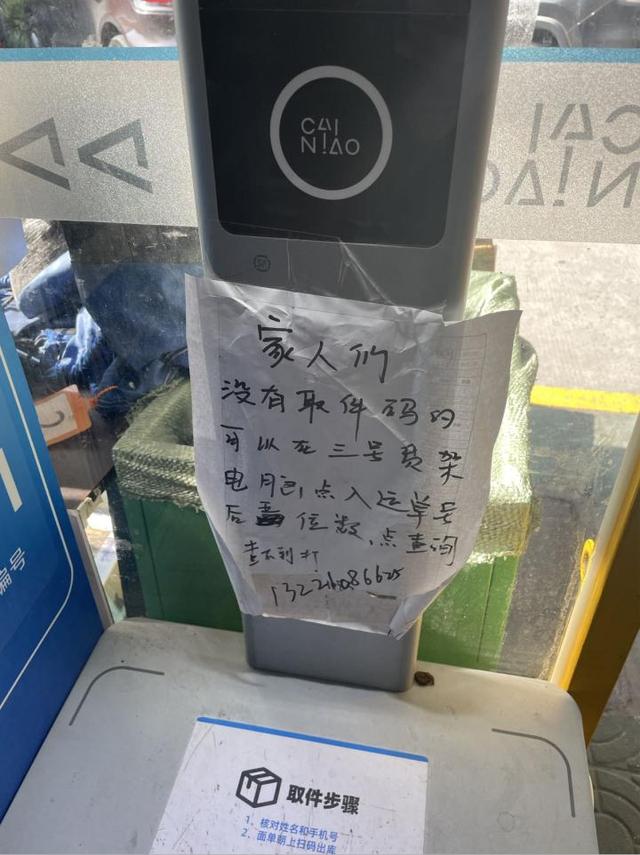 CAI
NIAO
CAI
NIAO
家人们
没有取件码的
可以在三号货架
电脑点入运单号
后 位数,点查询
查不到打
编号
取件步骤
1、核对姓名和手机号
2、面单朝上扫码出库